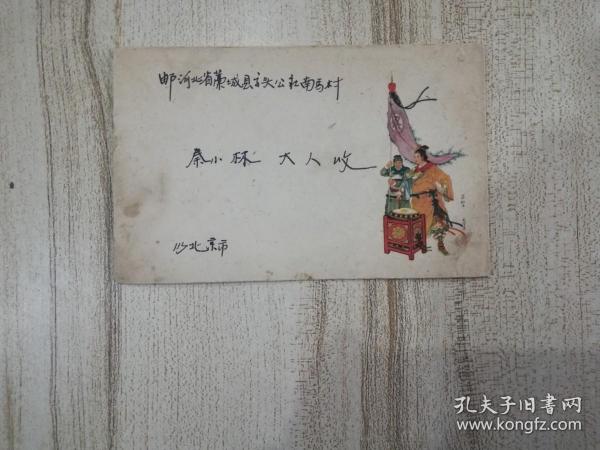 邮河北省藁城县京头公社南马村
秦小林 大人收
北京市
孔夫子旧书网
www.kongfz.com